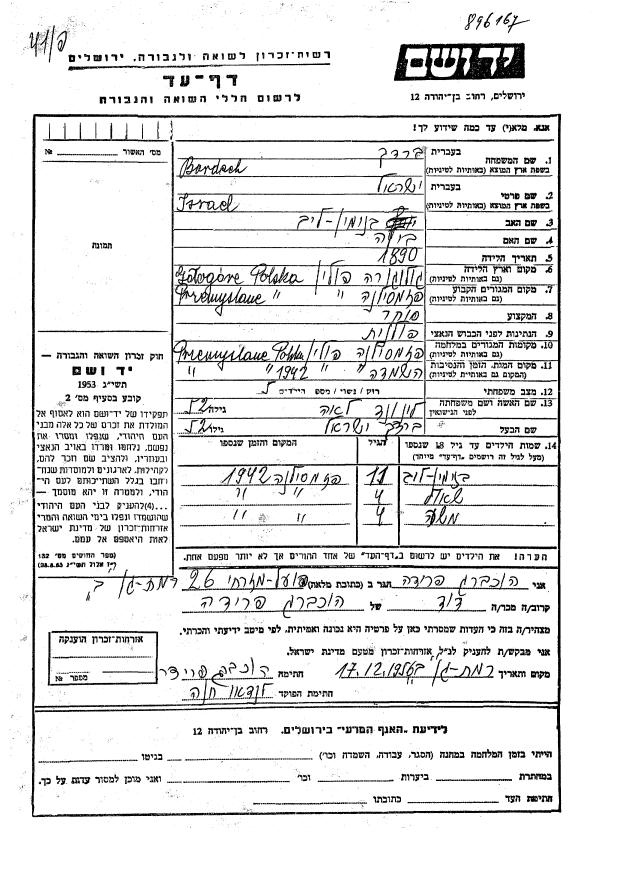 896167
יד ושם
רשות-זכרון לשואה ולגבורה, ירושלים
דף-עד
לרשום חללי השואה והגבורה
ירושלים, רחוב בן-יהודה 12
אנא, מלא(י) עד כמה שידוע לך!
מס' האשור
№
תמונה
1. שם המשפחה בעברית ברדך
בשפת ארץ המוצא (באותיות לטיניות) Bardach
2. שם פרטי בעברית ישראל
בשפת ארץ המוצא (באותיות לטיניות) Israel
3. שם האב בנימין-ליב
4. שם האם
5. תאריך הלידה 1890
6. מקום וארץ הלידה (גם באותיות לטיניות) פולין Polska
7. מקום המגורים הקבוע (גם באותיות לטיניות) פזמסילנה " " Przemyslane
8. המקצוע סוחר
9. הנתינות לפני הכבוש הנאצי פולנית
10. מקומות המגורים במלחמה (גם באותיות לטיניות) פזמסילנה פולין Przemyslane Polska
11. מקום המות, הזמן והנסיבות (המקום גם באותיות לטיניות) השמדה 1942 " "
12. מצב משפחתי רווק / נשוי / מספר הילדים 5
13. שם האשה ושם משפחתה לפני הנישואין לאה גילה 52
שם הבעל ברדך ישראל גילו 52
14. שמות הילדים עד גיל 18 שנספו (מעל לגיל זה רושמים "דף-עד" מיוחד) הגיל המקום והזמן שנספו
בנימין-ליב 11 פזמסילנה 1942
שאול 4 " "
4 " "
חוק זכרון השואה והגבורה –
יד ושם
תשי"ג 1953
קובע בסעיף מס' 2
תפקידו של יד-ושם הוא לאסוף אל
המולדת את זכרם של כל אלה מבני
העם היהודי, שנפלו ומסרו את
נפשם, נלחמו ומרדו באויב הנאצי
ובעוזריו, ולהציב שם וזכר להם,
לקהילות, לארגונים ולמוסדות שנח-
רבו בגלל השתייכותם לעם הי-
הודי, ולמטרה זו יהא מוסמך –
...(4) להעניק לבני העם היהודי
שהושמדו ונפלו בימי השואה והמרי
אזרחות-זכרון של מדינת ישראל
לאות היאספם אל עמם.
(ספר החוקים מס' 132
הערה! את הילדים יש לרשום ב"דף-העד" של אחד ההורים אך לא יותר מפעם אחת.
אני הוכברג פרידה הגר ב (כתובת מלאה) פועל-מזרחי 26 רמת-גן
קרוב/ה מכר/ה דוד של הוכברג פרידה
מצהיר/ה בזה כי העדות שמסרתי כאן על פרטיה היא נכונה ואמיתית, לפי מיטב ידיעתי והכרתי.
אני מבקש/ת להעניק לנ"ל אזרחות-זכרון מטעם מדינת ישראל.
מקום ותאריך רמת-גן 17.12.1956 חתימה הוכברג פרידה
חתימת הפוקד לנדאו חנה
אזרחות-זכרון הוענקה
מספר №
לידיעת "האגף המדעי" בירושלים, רחוב בן-יהודה 12
הייתי בזמן המלחמה במחנה (הסגר, עבודה, השמדה וכו') בגיטו
במחתרת ביערות וכו' ואני מוכן למסור עדות על כך.
חתימת העד כתובתו